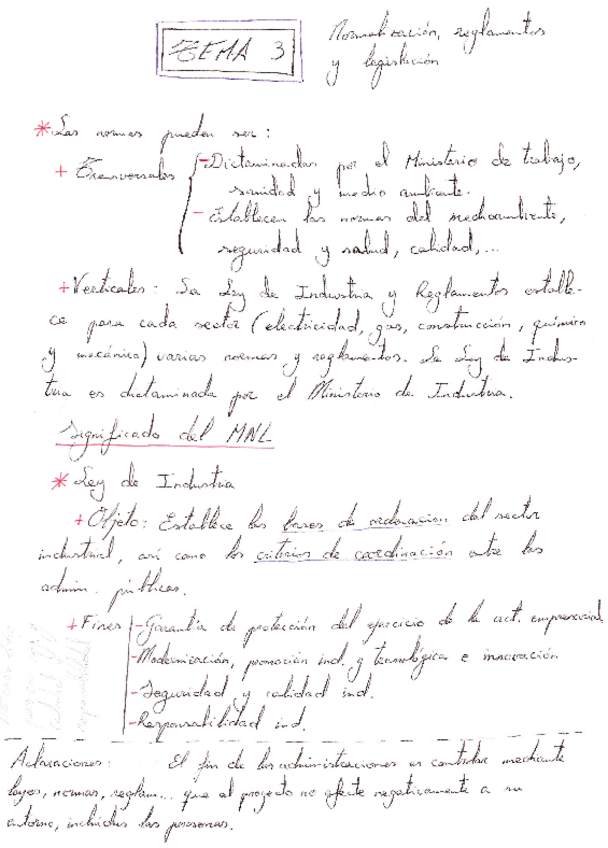 TEMA 3
Normalización, reglamentos
y legislación
* Las normas pueden ser:
+ Transversales
- Dictaminadas por el Ministerio de trabajo,
sanidad y medio ambiente.
- Establecen las normas del medioambiente,
seguridad y salud, calidad,...
+ Verticales: La Ley de Industria y Reglamentos estable-
ce para cada sector (electricidad, gas, construcción, química
y mecánica) varias normas y reglamentos. La Ley de Indus-
tria es dictaminada por el Ministerio de Industria.
Significado del MNL
* Ley de Industria
+ Objeto: Establece las bases de ordenación del sector
industrial, así como los criterios de coordinación entre las
admin. públicas.
+ Fines
- Garantía de protección del ejercicio de la act. empresarial
- Modernización, promoción ind. y tecnológica e innovación
- Seguridad y calidad ind.
- Responsabilidad ind.
Aclaraciones: El fin de las administraciones es controlar mediante
leyes, normas, reglam... que el proyecto no afecte negativamente a su
entorno, incluidas las personas.